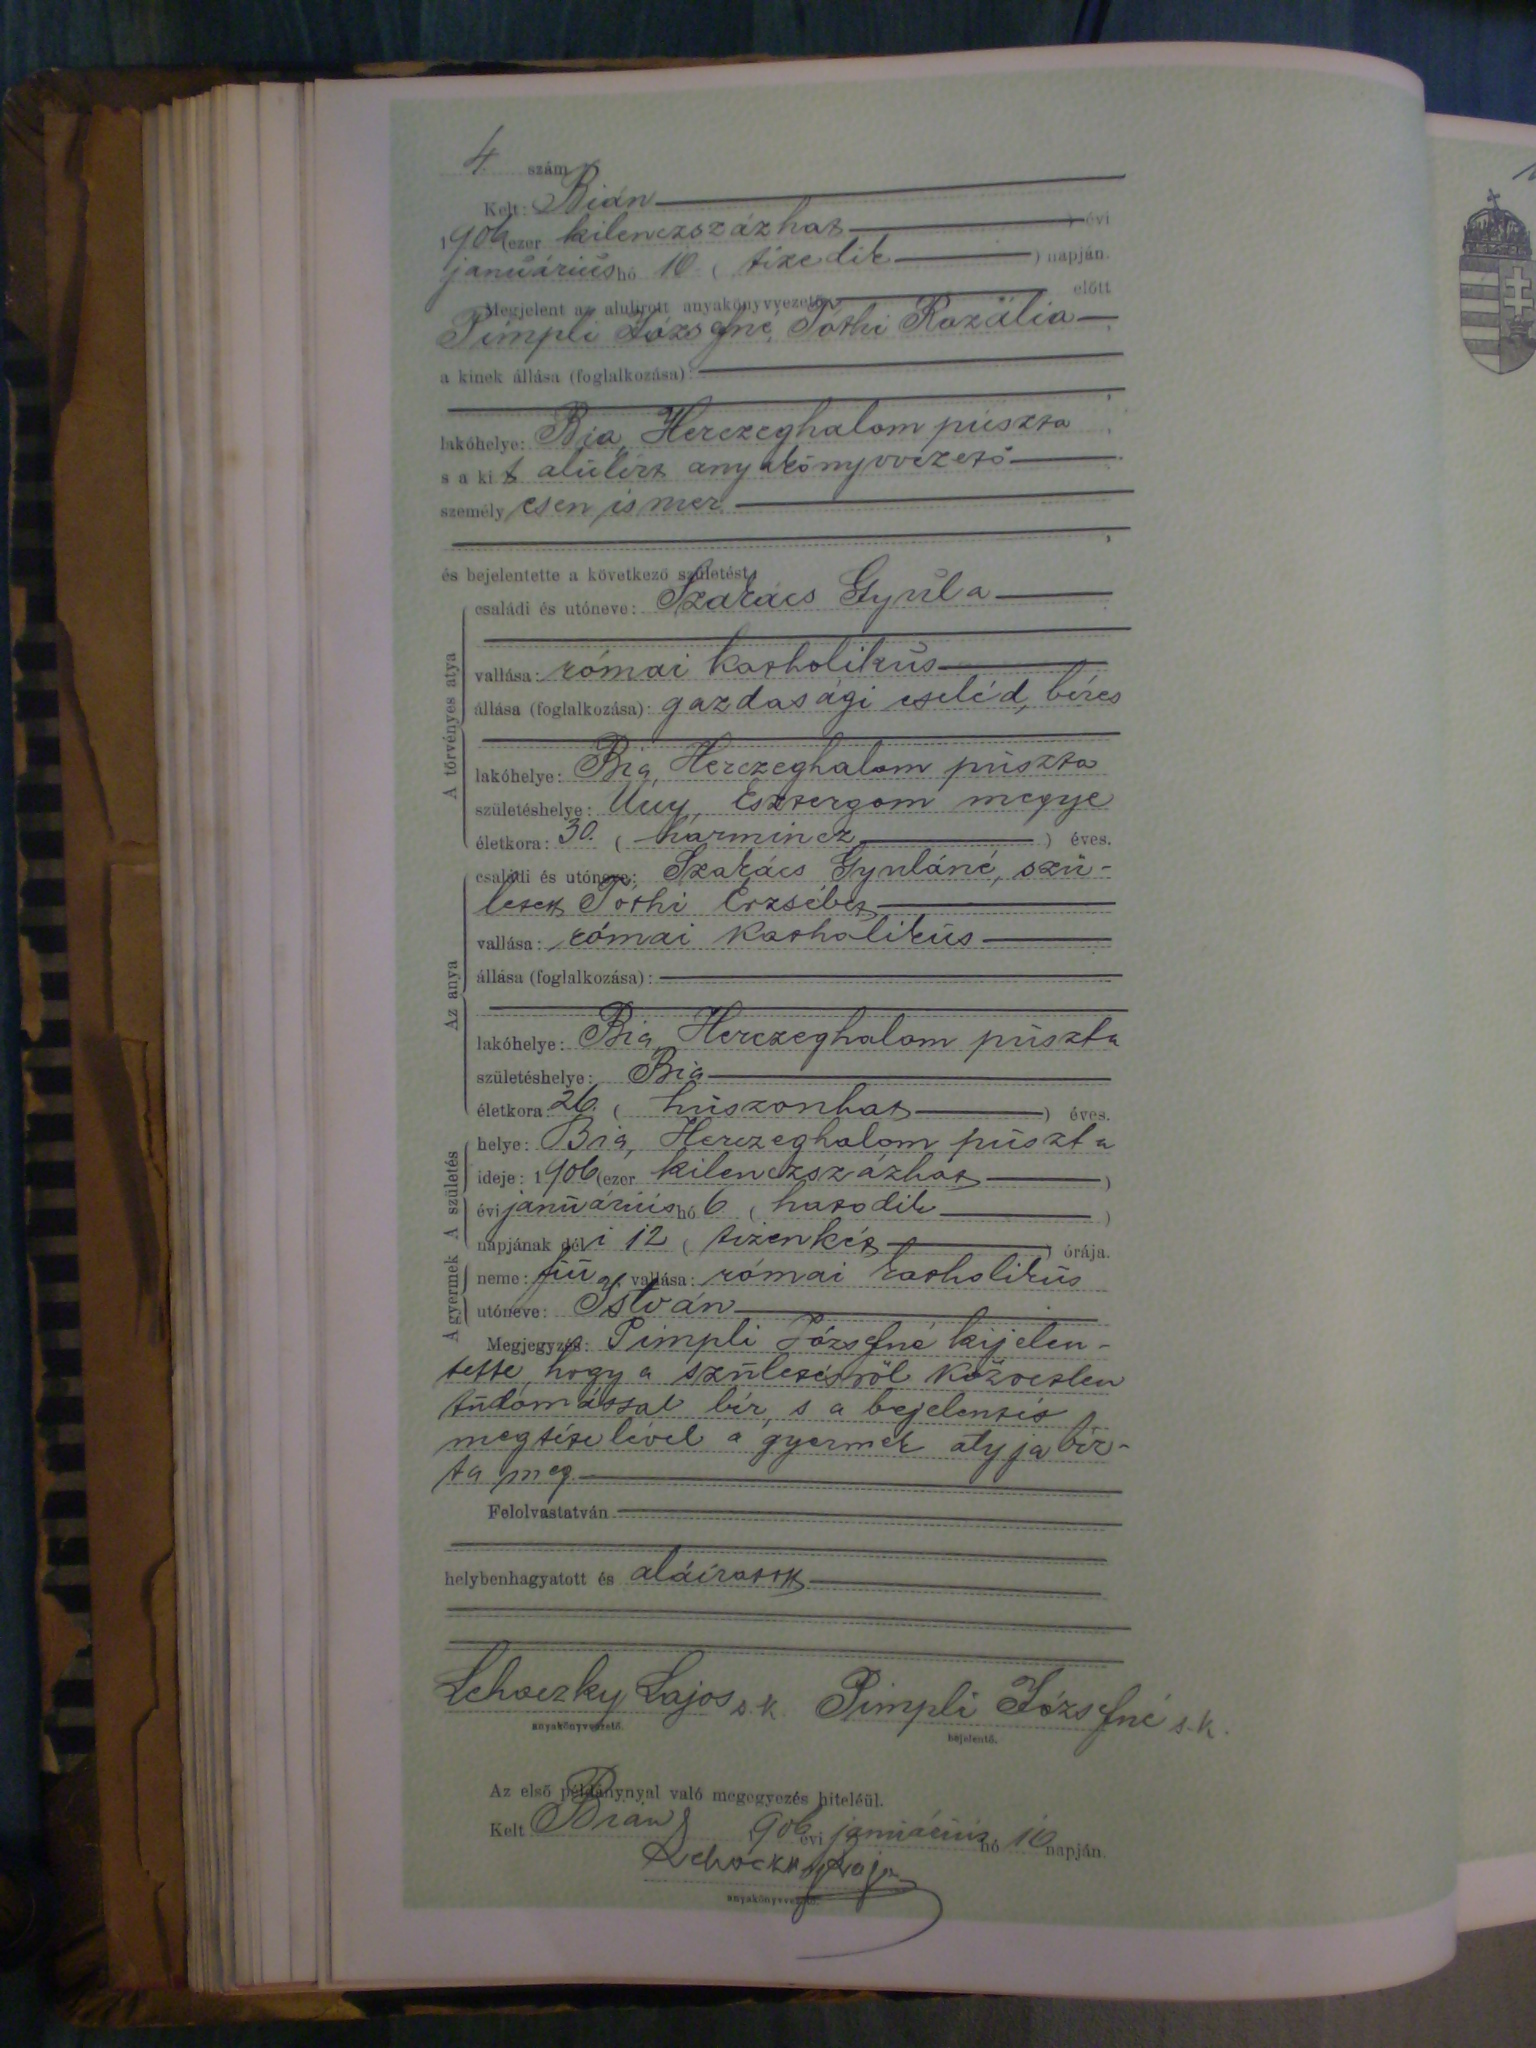 4. szám
Kelt: Bián
1906 (ezer kilenczszázhat) évi
januárius hó 10 (tizedik) napján.
Megjelent az alulirott anyakönyvvezető előtt
Pimpli Józsefné, Tóthi Rozália
a kinek állása (foglalkozása):
lakóhelye: Bia, Herczeghalom puszta
s a kit alulírt anyakönyvvezető
személyesen ismer
és bejelentette a következő születést:
A törvényes atya
családi és utóneve: Szakács Gyula
vallása: római katholikus
állása (foglalkozása): gazdasági cseléd, béres
lakóhelye: Bia, Herczeghalom puszta
születéshelye: Úny, Esztergom megye
életkora: 30. (harmincz) éves.
Az anya
családi és utóneve: Szakács Gyuláné, szü-
letett Tóthi Erzsébet
vallása: római katholikus
állása (foglalkozása):
lakóhelye: Bia, Herczeghalom puszta
születéshelye: Bia
életkora: 26. (huszonhat) éves.
A születés
helye: Bia, Herczeghalom puszta
ideje: 1906 (ezer kilenczszázhat)
évi januárius hó 6 (hatodik)
napjának déli 12 (tizenkét) órája.
A gyermek
neme: fiú, vallása: római katholikus
utóneve: István
Megjegyzés: Pimpli Józsefné kijelen-
tette, hogy a születésről közvetlen
tudomással bír, s a bejelentés
megtételével a gyermek atyja bíz-
ta meg.
Felolvastatván
helybenhagyatott és aláíratott
Lehoczky Lajos s.k. Pimpli Józsefné s.k.
anyakönyvvezető. bejelentő.
Az első példánynyal való megegyezés hiteléül.
Kelt Bián, 1906 évi januárius hó 10 napján.
Lehoczky Lajos
anyakönyvvezető.